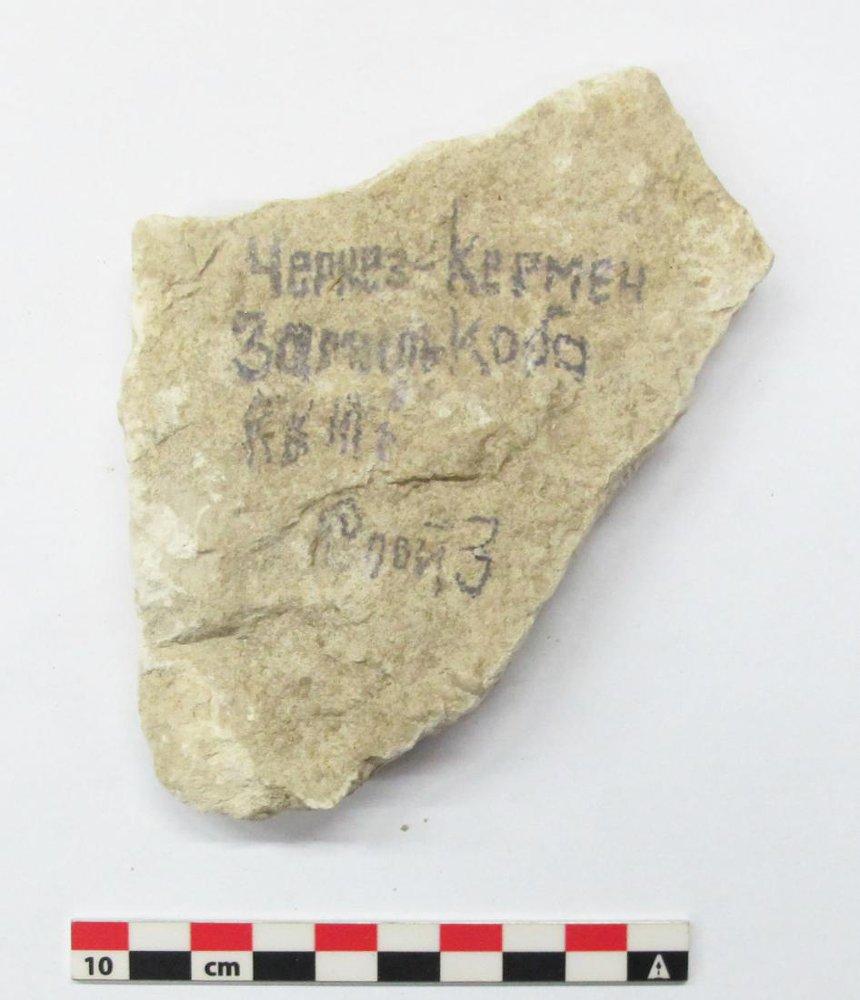 Черкез-Кермен
Замиль Коба
Слой 3
10 cm